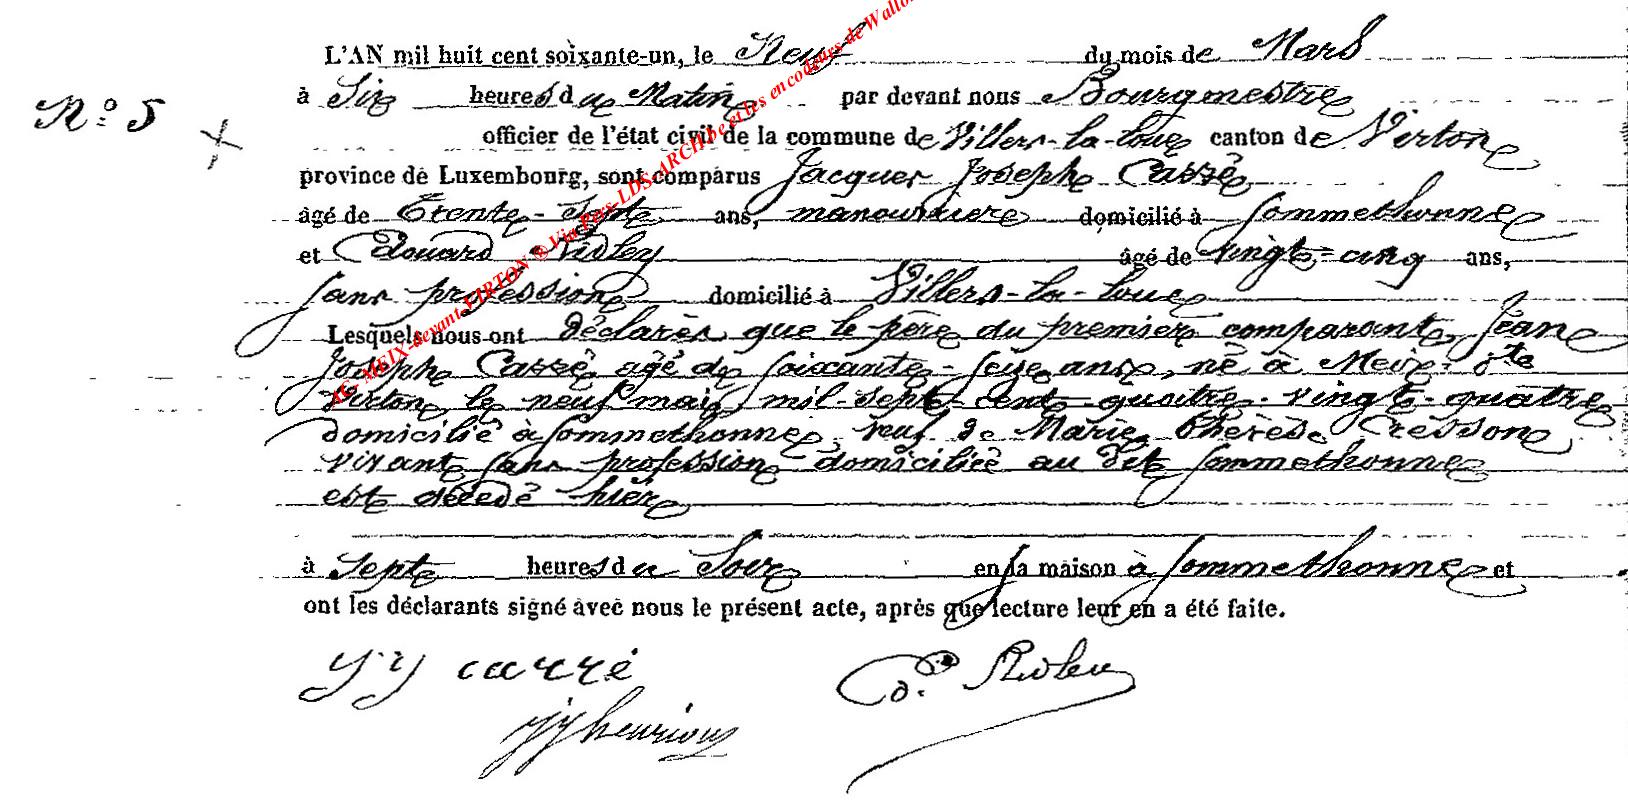 L'AN mil huit cent soixante-un, le Neuf du mois de Mars
N.º 5 à Six heures du Matin par devant nous Bourgmestre
officier de l'état civil de la commune de Villers-la-loue canton de Virton
province de Luxembourg, sont comparus Jacques Joseph Carré
âgé de Trente-Sept ans, manouvriere domicilié à Sommethonne
et Edouard Ridley âgé de vingt-cinq ans,
sans profession domicilié à Villers-la-loue
Lesquels nous ont déclarés que le père du premier comparant, Jean
Joseph Carré agé de soixante-seize ans, né à Meix-dt
Virton le neuf mai mil-sept-cent quatre-vingt-quatre
domicilié à Sommethonne, veuf de Marie Thérèse Cresson
vivant sans profession domiciliée au dit Sommethonne
est décédé hier
à Sept heures du Soir en sa maison à Sommethonne et
ont les déclarants signé avec nous le présent acte, après que lecture leur en a été faite.
JJ carré Ed. Ridley
JJ henrion
AG MEIX-devant-VIRTON ® Via Pers-LDS-ARCH.be et les encodeurs de Wallo